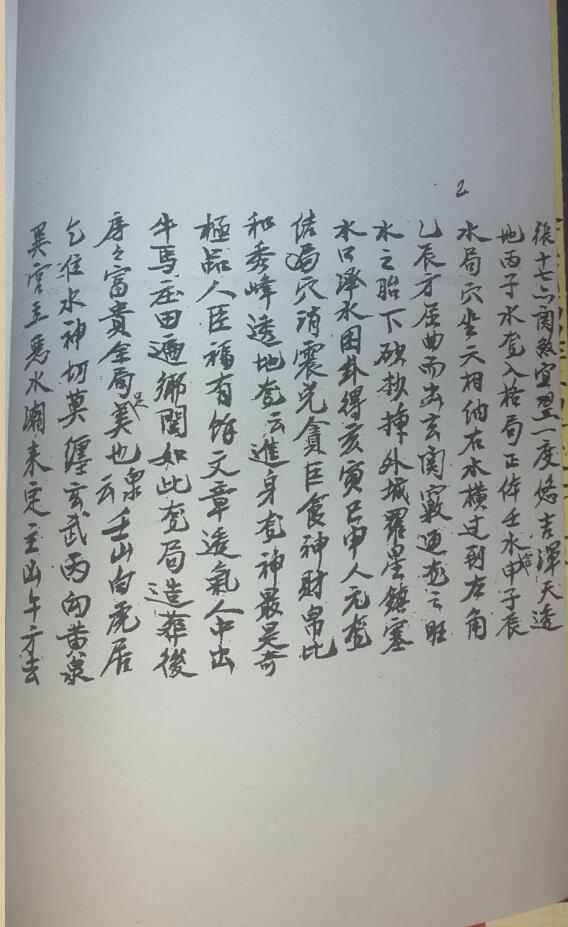 2
張十七六関煞室翌一度悠吉渾天透
地丙子水龙入格局正作壬水申子辰
水局穴坐天相纳右水横过到左角
乙辰方屈曲而出玄関竅通龙之旺
水之胎下砂抄揷外城羅星鎮塞
水口净水困卦得亥寅巳申人元龙
结局穴消震兑貪巨食神財帛比
和秀峰透地龙云進身龙神最是奇
極品人臣福有馀文章透氣人中出
牛馬庄田遍鄉閭如此龙局造葬後
房々富貴全局美足也泉云壬山白虎居
乞住水神切莫纏玄武丙向黄泉
巽宫立惡水潮来定主凶午方去